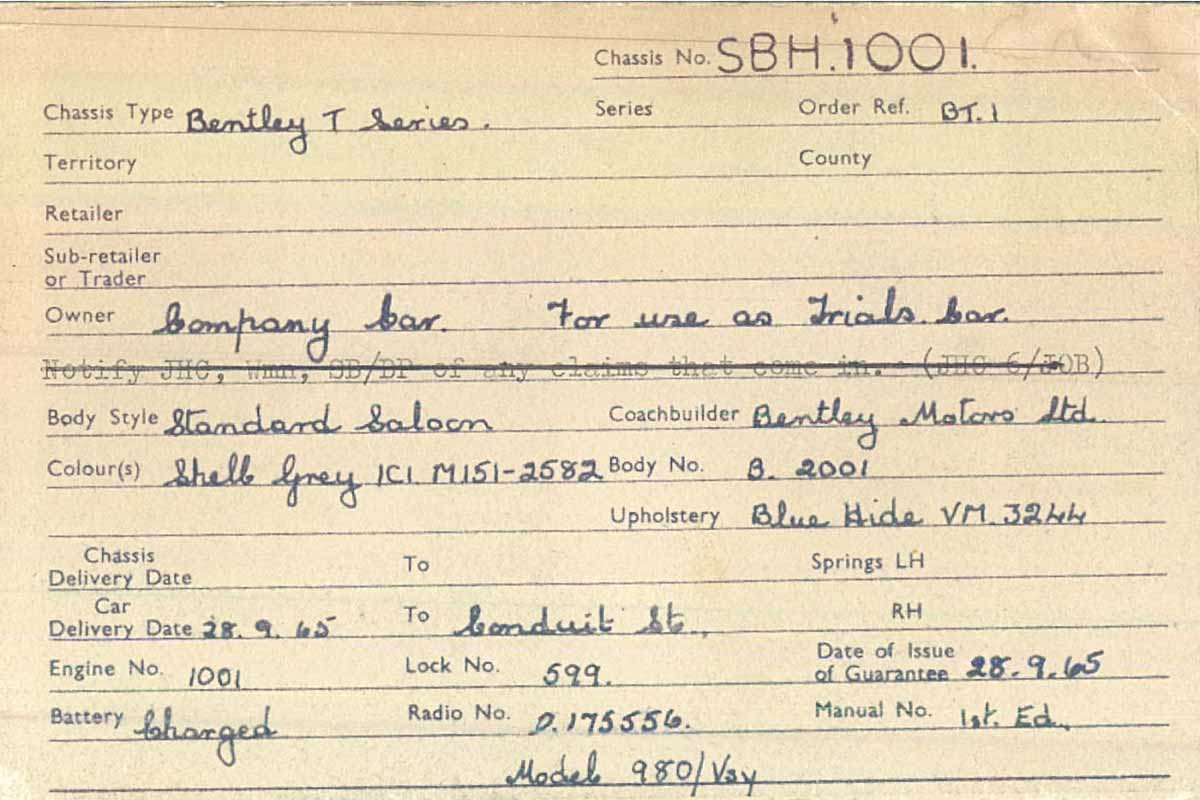 Chassis No. SBH.1001.
Chassis Type Bentley T Series. Series Order Ref. BT.1
Territory County
Retailer
Sub-retailer
or Trader
Owner Company Car. For use as Trials Car.
Notify JHC, Wmn, SB/DP of any claims that come in. (JHC 6/JOB)
Body Style Standard Saloon Coachbuilder Bentley Motors Ltd.
Colour(s) Shell Grey ICI M151-2582 Body No. B. 2001
Upholstery Blue Hide VM 3244
Chassis
Delivery Date To Springs LH
Car
Delivery Date 28.9.65 To Conduit St., RH
Engine No. 1001 Lock No. 599. Date of Issue
of Guarantee 28.9.65
Battery Charged Radio No. D.175556. Manual No. 1st. Ed.
Model 980/Vsy